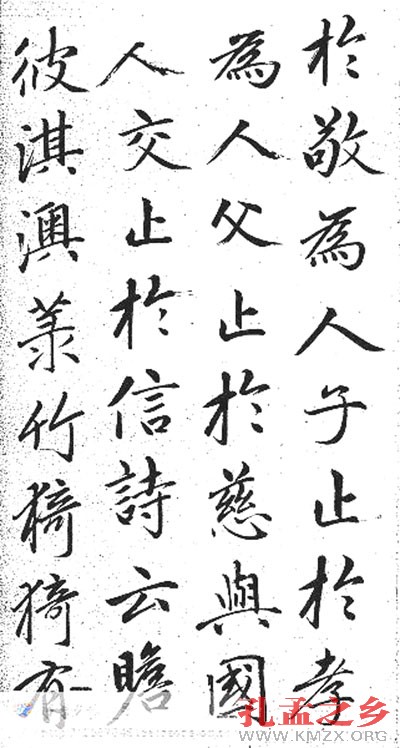 於敬為人子止於孝
為人父止於慈與國
人交止於信詩云瞻
彼淇澳菉竹猗猗有
孔孟之乡
WWW.KMZX.ORG